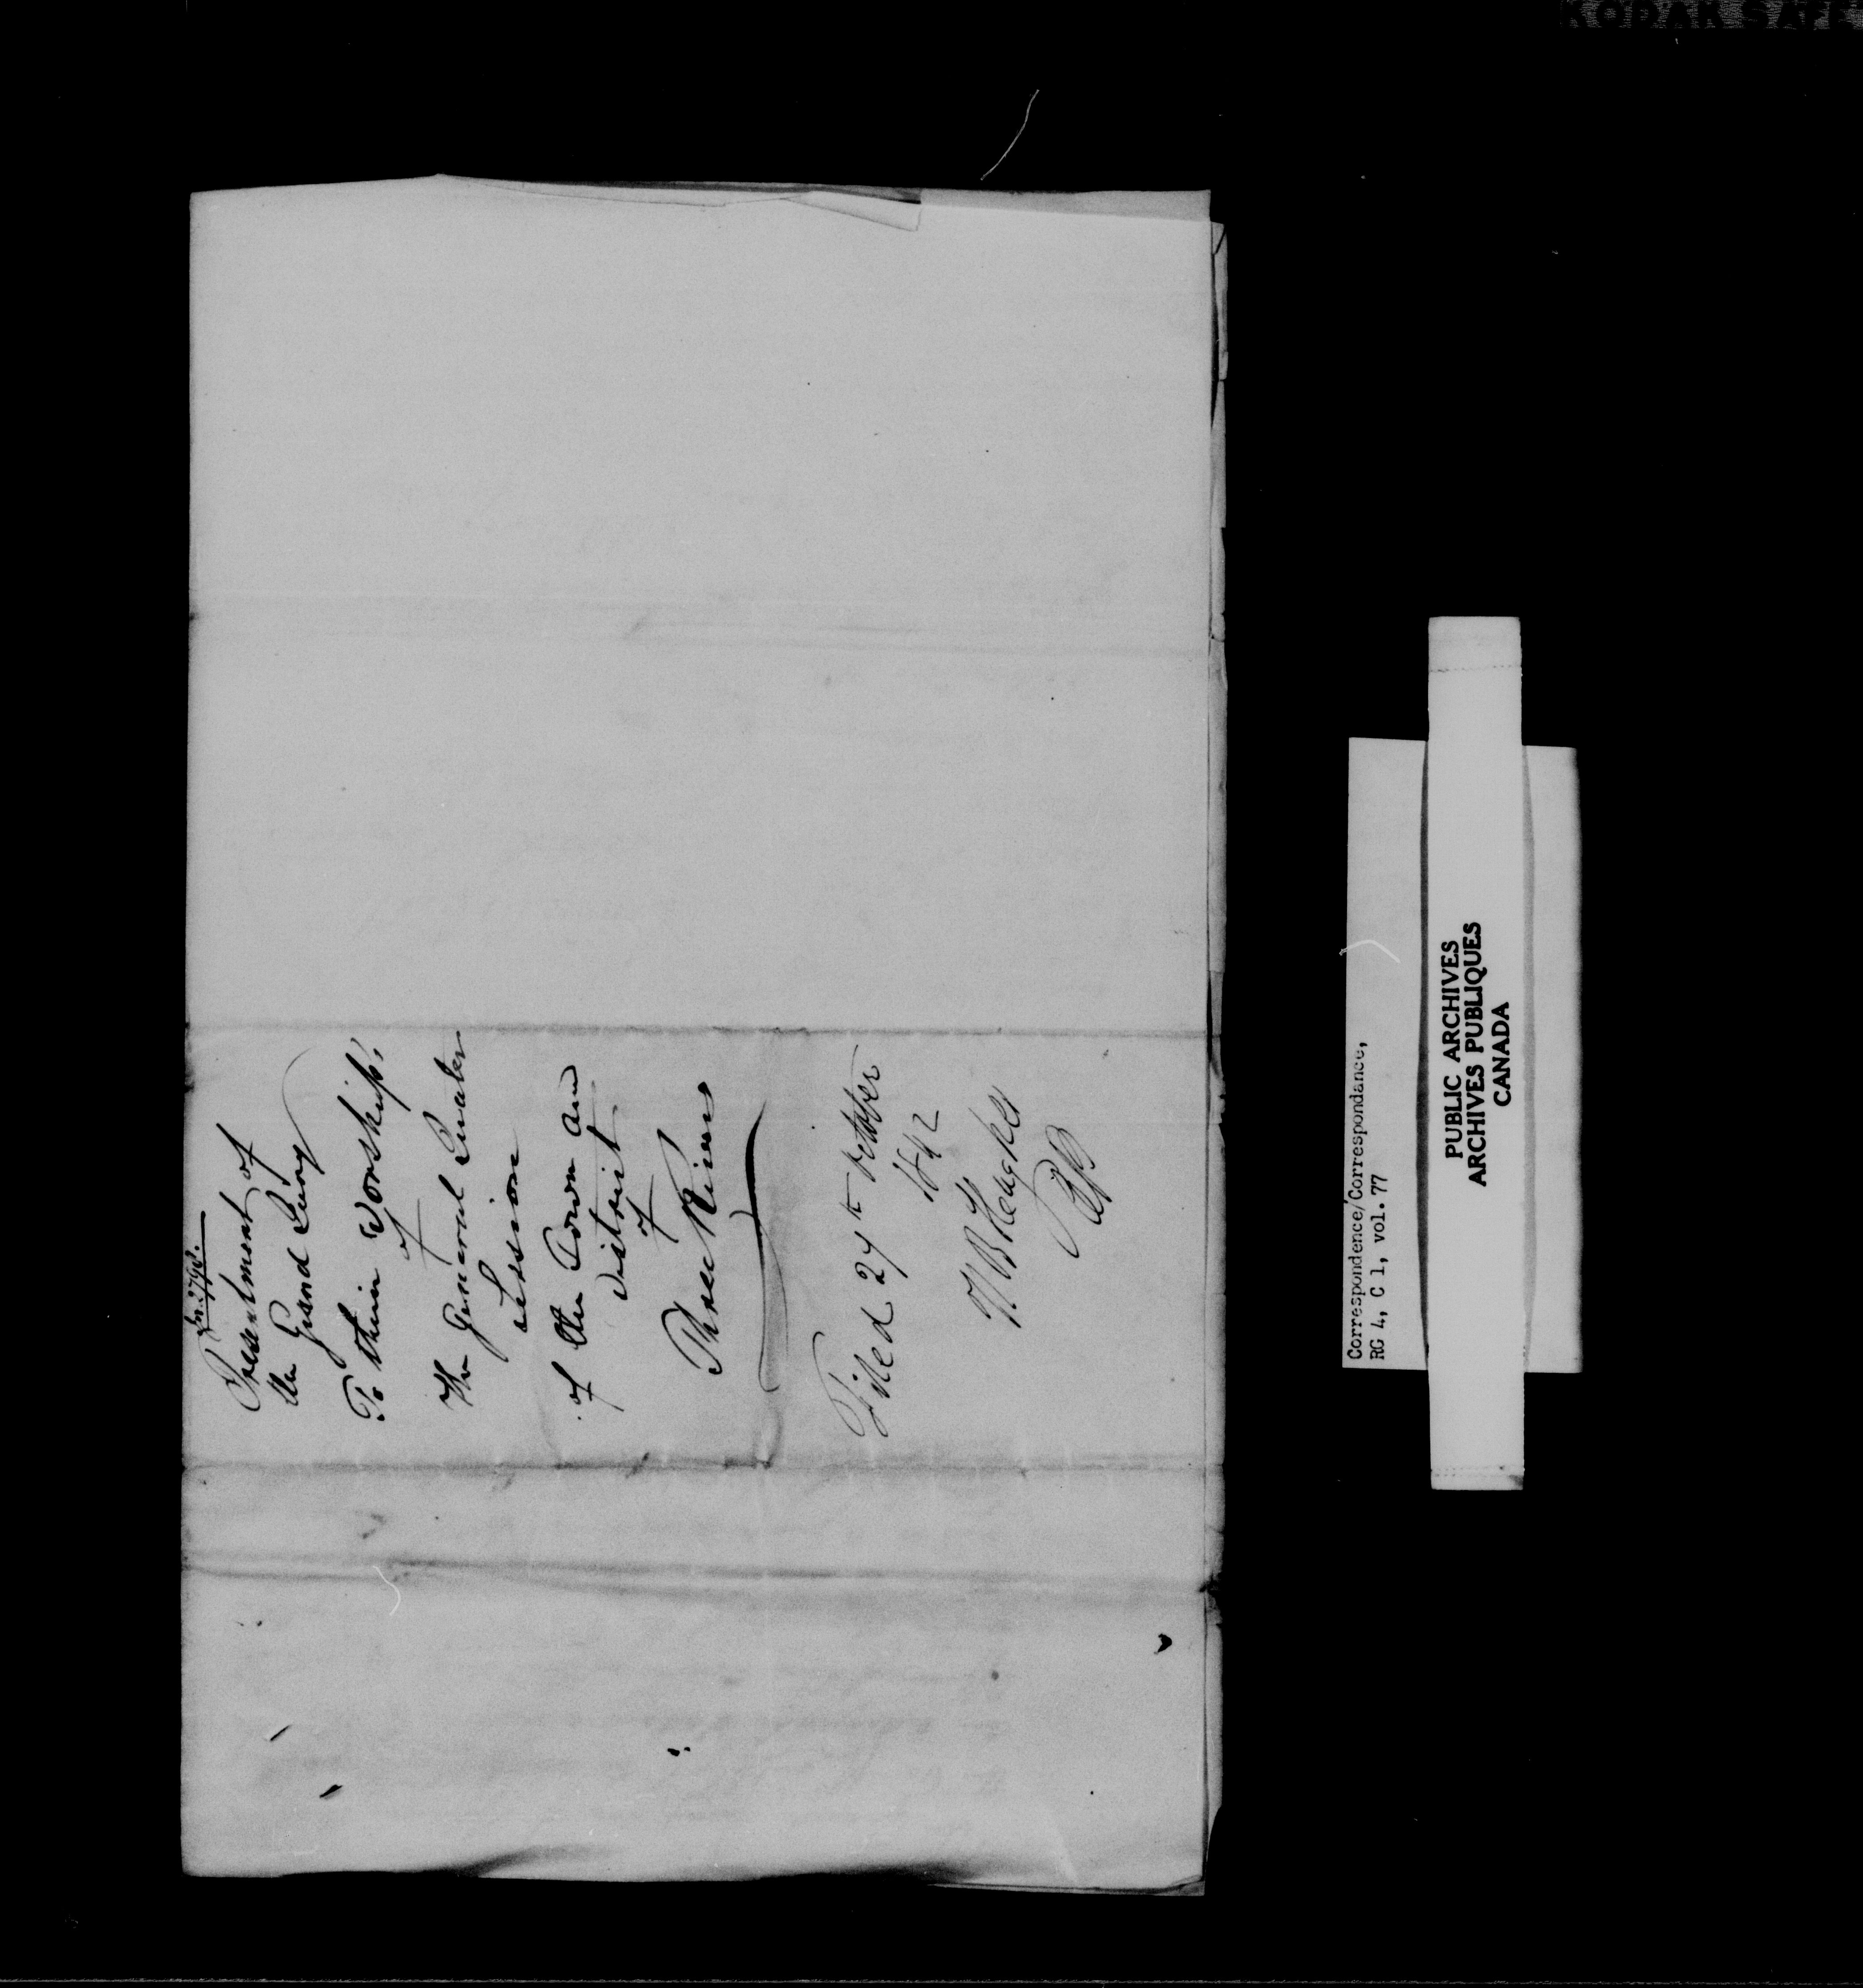 Presentment of
the Grand Jury
To their Worships
of
the General Quater
Session
of the Town and
District
of
Three Rivers
Filed 27th October
1842
Correspondence/Correspondance,
RG 4, C 1, vol. 77
PUBLIC ARCHIVES
ARCHIVES PUBLIQUES
CANADA
KODAK SAFE